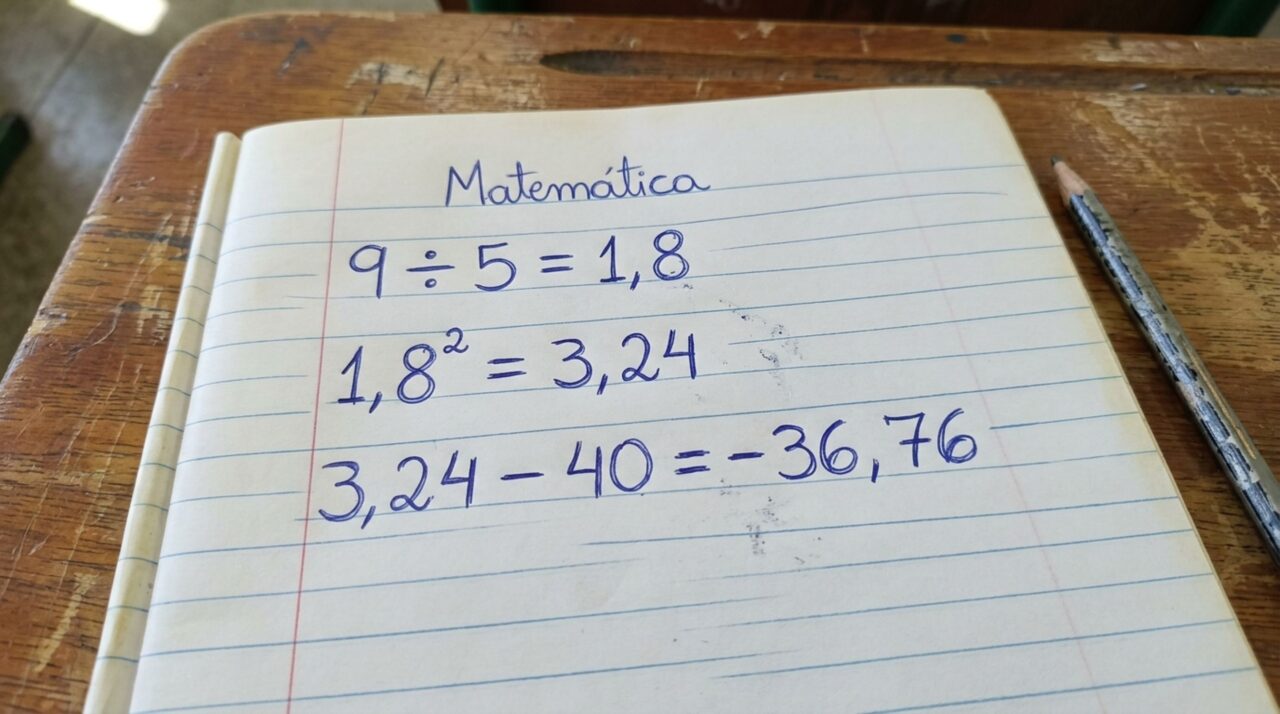 Matemática
9 ÷ 5 = 1,8
1,8² = 3,24
3,24 – 40 = –36,76